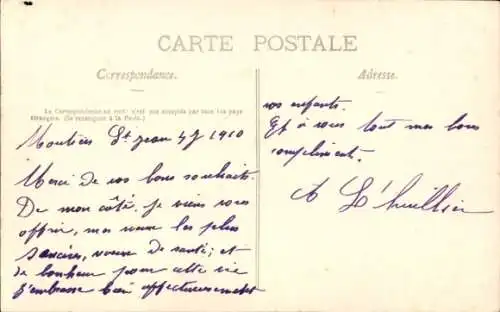 CARTE POSTALE
Correspondance.
Adresse.
La Correspondance au recto n'est pas acceptée par tous les pays
étrangers. (Se renseigner à la Poste.)
Moutiers St Jean 4 J 1910
Merci de vos bons souhaits.
De mon côté, je viens vous
offrir, mes vœux les plus
sincères, vœux de santé; et
de bonheur pour cette vie
J'embrasse bien affectueusement
vos enfants.
Et à vous tout mes bons
compliment.
A L'huillier